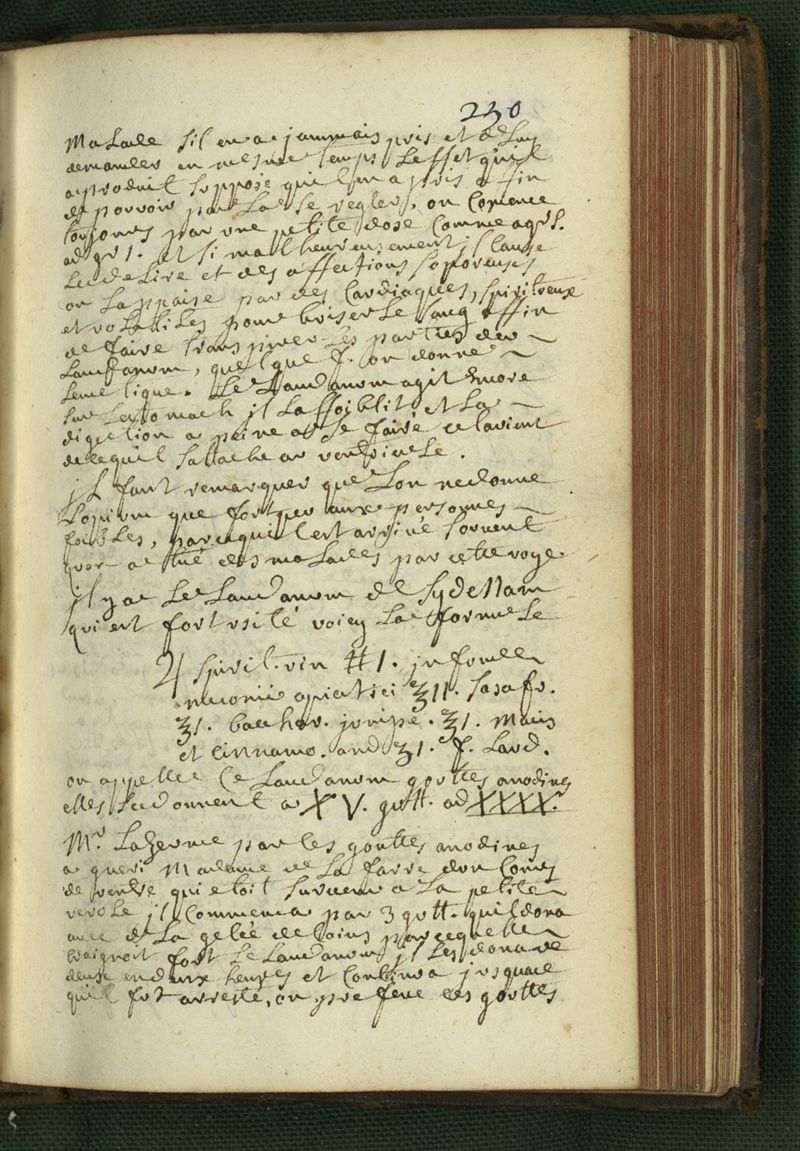 230
malade sil en a jammais pris et de luy
demander en mesme temps l effet quil
a produit suppose quil en a pris affin
de pouvoir par la se regler, on comence
toujours par une petite dose comme a grs.
ad gr 1. et si malheureusement il cause
le delire et des affections soporeuses
on lappaise par des cardiaques, spiritueux
et volatiles pour briser le sang affin
de faire transpirer les parties du
laudanom, quelque f. on donne
lemetique. le laudanom agit encore
sur lestomach il laffoiblit et la
digestion a peine a se faire cela vient
de ce quil sattache au ventricule.
il faut remarquer que lon ne donne
lopium que fort peu aux personnes
foibles, parcequil est arrivé souvent
quon a tué des malades par cette voye
il y a le laudanom de sydenam
qui est fort usité voicy la formule
♃ spirit. vin ℔ 1. infunde
meconii opiatici ʒ II. sasafr.
ʒ I. bacchar. junipe. ʒ I. macis
et cinnamo. and ʒ I. f. laud.
on appelle ce laudanom gouttes anodines
elles se donnent a XV. gutt. ad XXXX.
Mr Lazerme par les gouttes anodines
a gueri madame de la farre dun cours
de ventre qui etoit survenu a la petite
verole il commenca par 3 gutt. quil dona
avec de la gelée de coins parcequelle
craignoit fort le laudanom il les dona de
deux en deux heures et continua jusqua ce
quil fut arresté, on prefere ces gouttes